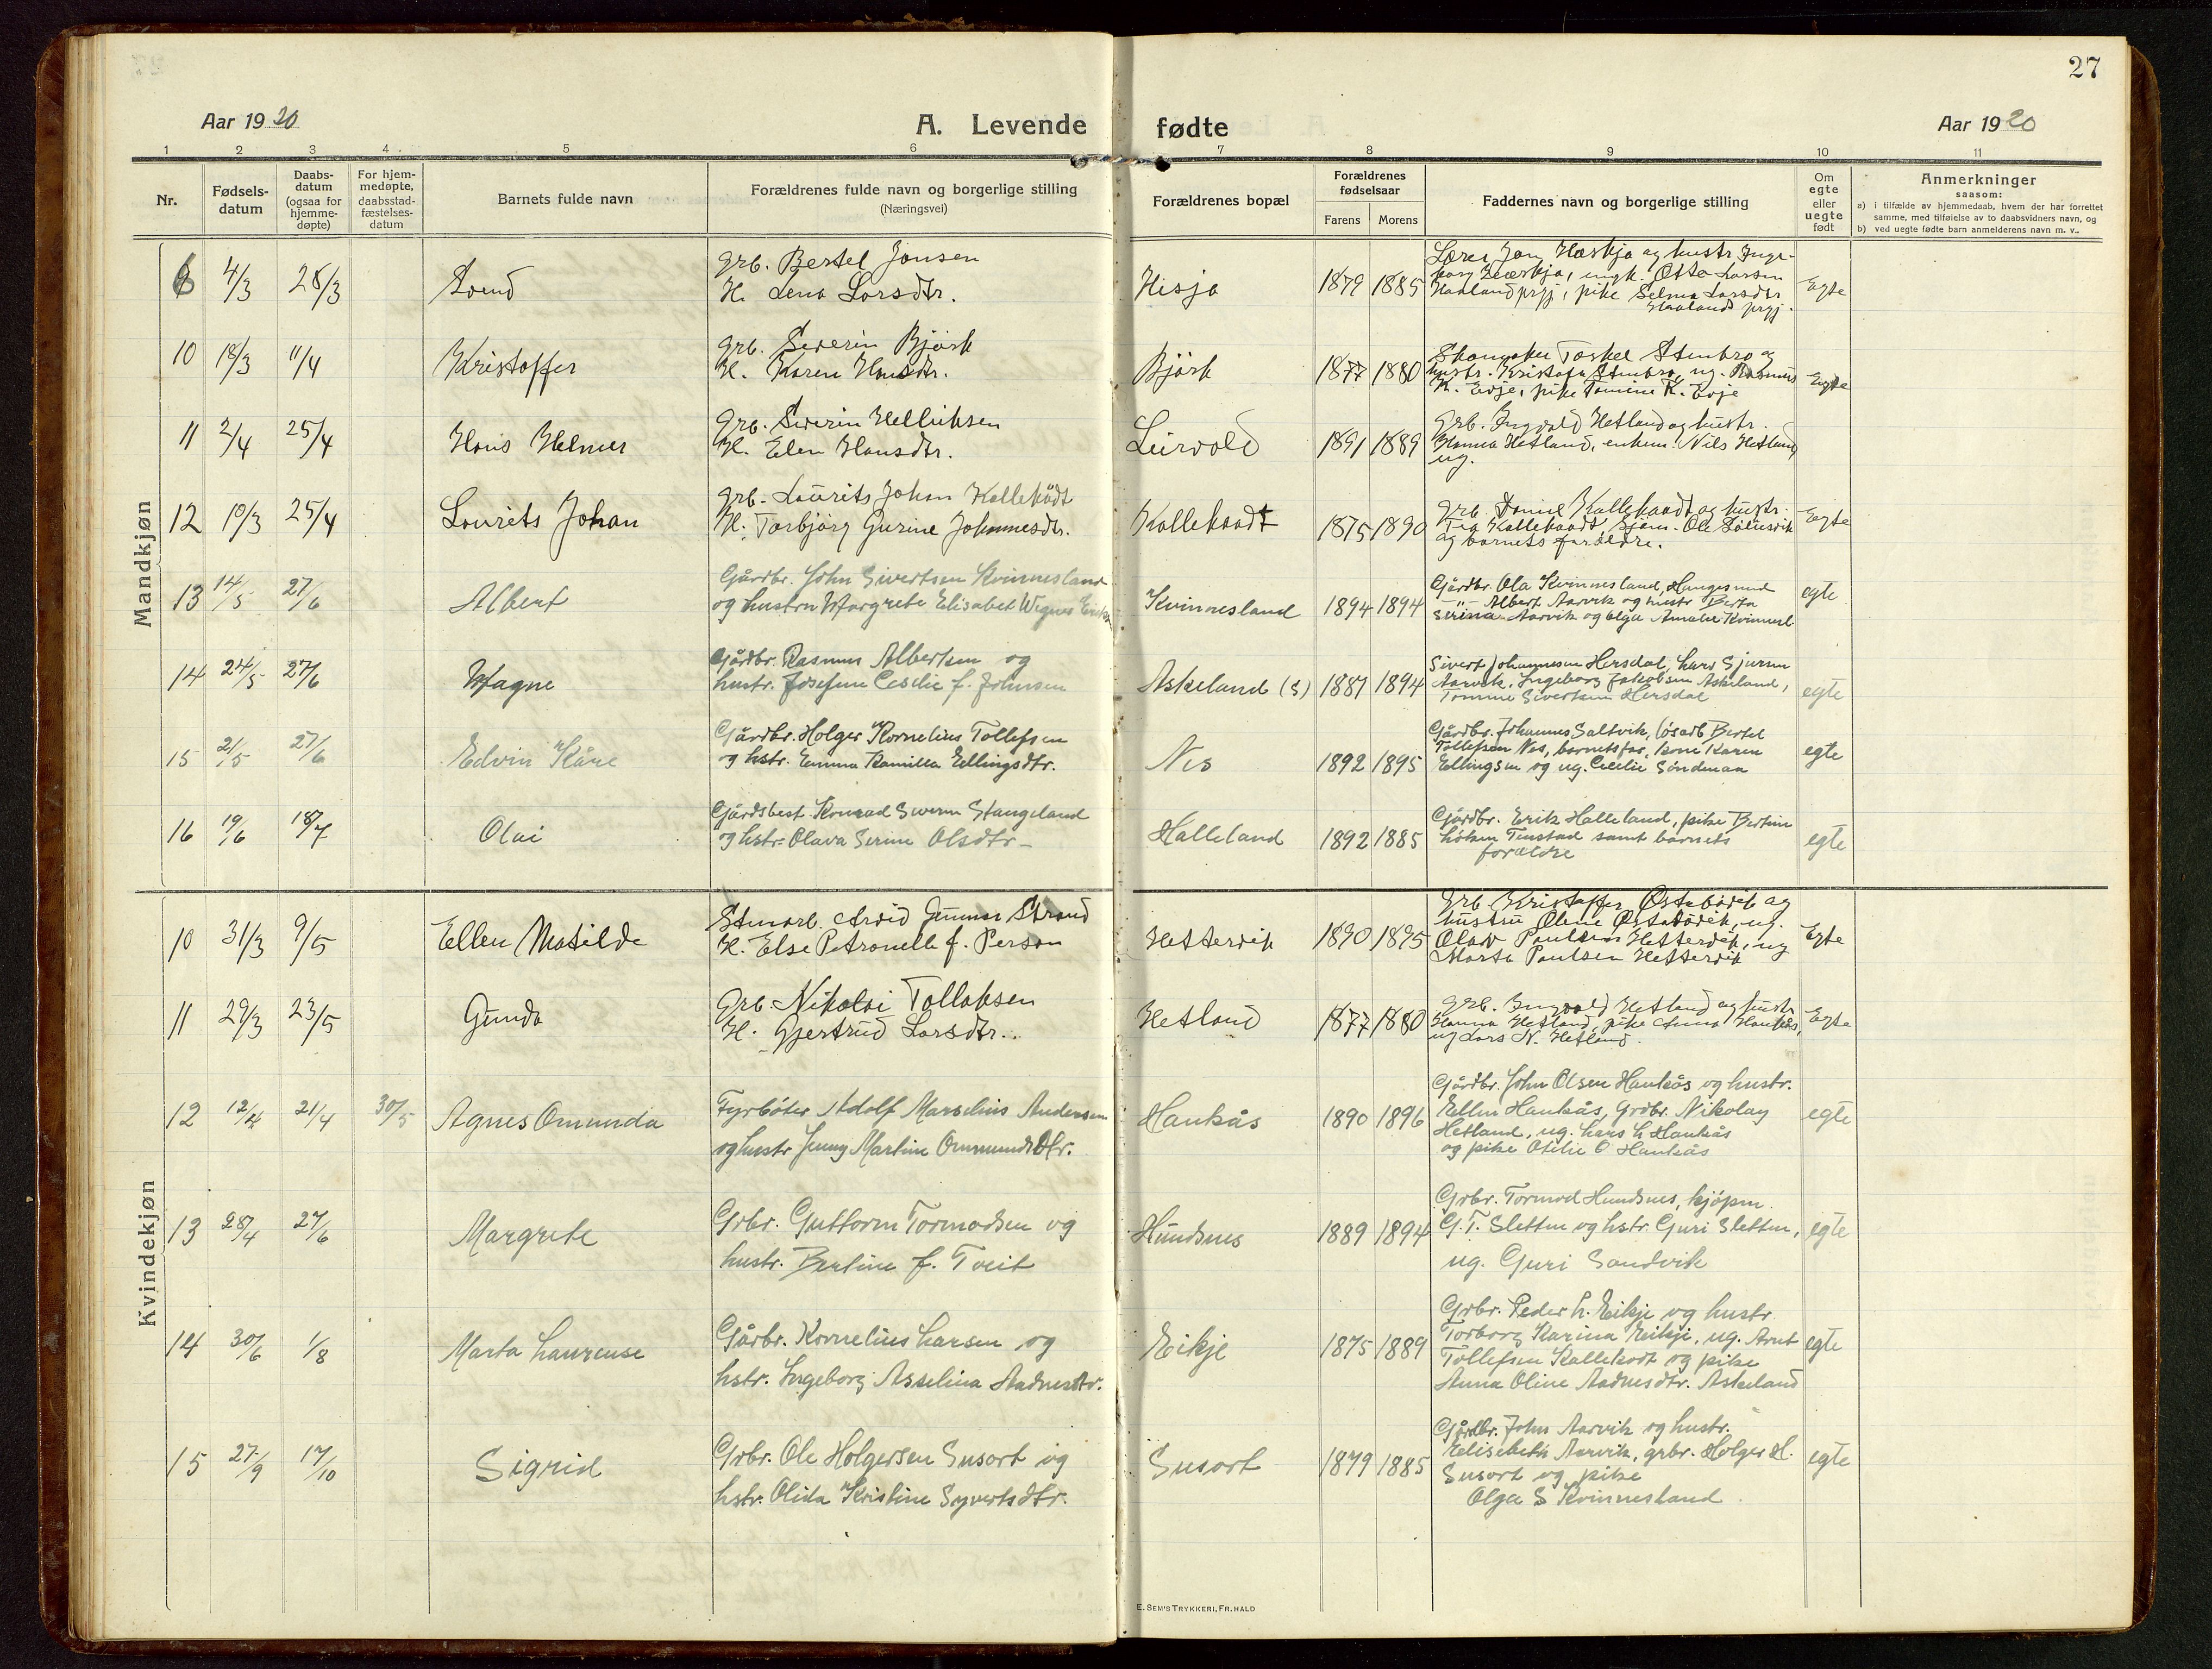 27
Aar 1920
A. Levende
fødte
Aar 1920
1 2 3 4 5 6 7 8 9 10 11
Nr.
Fødsels-
datum
Daabs-
datum
(ogsaa for
hjemme-
døpte)
For hjem-
medøpte,
daabsstad-
fæstelses-
datum
Barnets fulde navn
Forældrenes fulde navn og borgerlige stilling
(Næringsvei)
Forældrenes bopæl
Forældrenes
fødselsaar
Farens Morens
Faddernes navn og borgerlige stilling
Om
egte
eller
uegte
født
Anmerkninger
saasom:
a) i tilfælde av hjemmedaab, hvem der har forrettet
samme, med tilføielse av to daabsvidners navn, og
b) ved uegte fødte barn anmelderens navn m. v..
Mandkjøn
4/3 28/3
Grb. Bertel Jonsen
H. Lena Larsdtr.
Hisja 1879 1885
Egte
10 18/3 11/4 Kristoffer
Grb. Severin Bjørk
H. Karen Hansdtr.
Bjørk 1877 1880
Egte
11 2/4 25/4 Hans Helmer
Grb. Severin Helliksen
H. Elen Hansdtr.
Leirvold 1891 1889
Grb. Ingvald Hetland og hustr.
Hanna Hetland, enkem. Nils Hetland,
ug.
12 10/3 25/4 Laurits Johan
Grb. Laurits Johan Kallekødt
H. Torbjørg Gurine Johannesdtr.
Kallekodt 1875 1890
og barnets forældre.
Egte
13 14/5 27/6 Albert
Gårdbr. John Sivertsen Kvinnesland
og hustru Margrete Elisabet
Kvinnesland 1894 1894
Gårdbr. Ola Kvinnesland,
-"- Albert Aarvik og hustr. Berta
Serina Aarvik og Olga Amalie Kvinnesl.
egte
14 24/5 27/6 Magne
Gårdbr. Rasmus Albertsen og
hustr. Josefine Cecilie f. Johnsen
Askeland (s) 1887 1894
Sivert Johannesen Hersdal, Lars Sjursen
Aarvik, Ingeborg Jakobsen Askeland,
Tomine Sivertsen Hersdal
egte
15 2/5 27/6 Edvin Kåre
Gårdbr. Holger Kornelius Tollefsen
og hstr. Emma Kamilla Ellingsdtr.
Nes 1892 1895
Gårdbr. Johannes Saltvik, løsarb Bertel
Tollefsen Nes, barnets far, kone Karen
Ellingsen og ug. Cecilie Søndenaa
egte
16 19/6 18/7 Olai
Gårdsbest. Konrad Severin Stangeland
og hstr. Olava Serine Olsdtr-
Halleland 1892 1885
Gårdbr. Erik Halleland, pike Bertine
Tinstad samt barnets
forældre
egte
Kvindekjøn
10 31/3 9/5 Ellen Matilde
Arvid Gunnar Strand
H. Else Petronelle f. Person
Hettervik 1890 1895
Grb. Kristoffer Østebøvik og
hustru Oline Østebøvik, ug.
Olav Paulsen Hettervik, ug
Marta Paulsen Hettervik
Egte
11 29/3 23/5 Gunda
Grb. Nikolai Tollaksen
H. Gjertrud Larsdtr..
Hetland 1877 1880
Grb. Ingvald Hetland og hustr.
Hanna Hetland, pike Anna Haukås,
ug Lars N. Hetland.
Egte
12 12/4 21/4 30/5 Agnes Omunda
Fyrbøter Adolf Marselius Andersen
og hustr Jenny Martine Ommundsdtr.
Haukås 1890 1896
Gårdbr. John Olsen Haukås og hustr.
Ellen Haukås, Grdbr. Nikolay
Hetland, ug. Lars L Haukås
og pike Otilie O Haukås
egte
13 28/4 27/6 Margrete
Grbr. Guttorm Tormodsen og
hustr. Bertine f. Tveit
Hundsnes 1889 1894
Grbr. Tormod Hundsnes, kjøpm.
G.T. Sletten og hstr. Guri Sletten,
ug. Guri Sandvik
egte
14 30/6 1/8 Marta Laurense
Gårbr. Kornelius Larsen og
hstr. Ingeborg Asselina Aadnesdtr.
Eikje 1875 1889
Grbr. Peder L. Eikje og hustr
Torborg Karina Eikje, ug. Arnt
Tollefsen Kallekodt og pike
Anna Oline Aadnesdtr. Askeland
egte
15 27/9 17/10 Sigrid
Grbr. Ole Holgersen Susort og
hstr. Olida Kristine Syvertsdtr.
Susort 1879 1885
Gårdbr. John Aarvik og hustr.
Elisebeth Aarvik, grbr. Holger H.
Susort og pike
Olga S Kvinnesland
egte
E. SEM'S TRYKKERI, FR. HALD